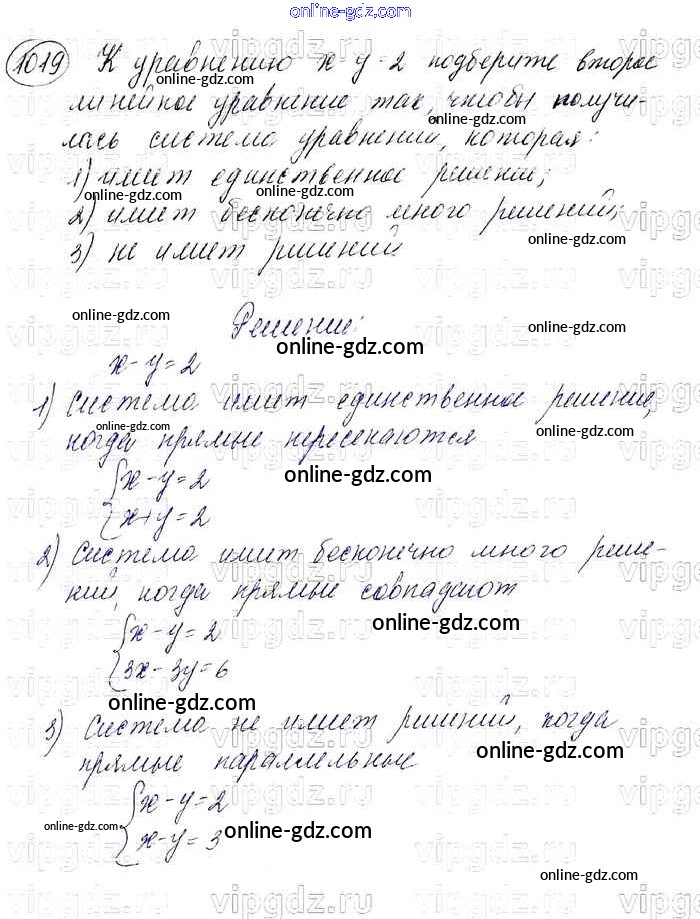 online-gdz.com
1019 К уравнению x-y=2 подберите второе
линейное уравнение так, чтобы получи-
лась система уравнений, которая:
1) имеет единственное решение;
2) имеет бесконечно много решений;
3) не имеет решений.
Решение:
x-y=2
1) Система имеет единственное решение,
когда прямые пересекаются
{x-y=2
{x+y=2
2) Система имеет бесконечно много реше-
ний, когда прямые совпадают
{x-y=2
{3x-3y=6
3) Система не имеет решений, когда
прямые параллельные
{x-y=2
{x-y=3
online-gdz.com
vipgdz.ru